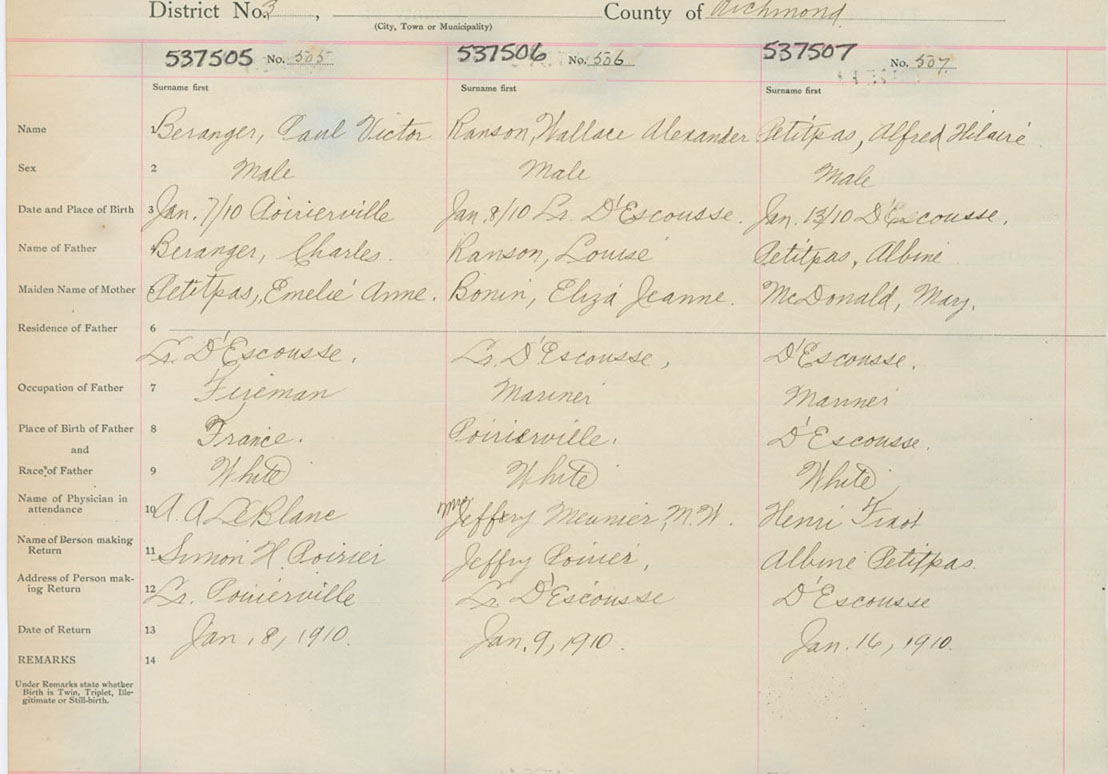 District No. 3, County of Richmond
(City, Town or Municipality)
537505 No. 505 537506 No. 506 537507 No. 507
Surname first Surname first Surname first
Name 1 Beranger, Paul Victor Ranson, Wallace Alexander Petitpas, Alfred Hilaire
Sex 2 Male Male Male
Date and Place of Birth 3 Jan. 7/10 Poirierville Jan. 8/10 Lr. D'Escousse. Jan. 13/10 D'Escousse.
Name of Father 4 Beranger, Charles. Ranson, Louise Petitpas, Albine
Maiden Name of Mother 5 Petitpas, Emelie Anne. Bonin, Eliza Jeanne. McDonald, Mary.
Residence of Father 6
Lr. D'Escousse. Lr. D'Escousse, D'Escousse.
Occupation of Father 7 Fireman Mariner Mariner
Place of Birth of Father 8 France. Poirierville. D'Escousse.
and
Race of Father 9 White White White
Name of Physician in
attendance 10 A. A. LeBlanc Mrs Jeffry Meunier, M.W. Henri
Name of Person making
Return 11 Simon H. Poirier Jeffry Poirier, Albine Petitpas.
Address of Person mak-
ing Return 12 Lr. Poirierville Lr. D'Escousse D'Escousse
Date of Return 13 Jan. 8, 1910. Jan. 9, 1910. Jan. 16, 1910.
REMARKS 14
Under Remarks state whether
Birth is Twin, Triplet, Ille-
gitimate or Still-birth.